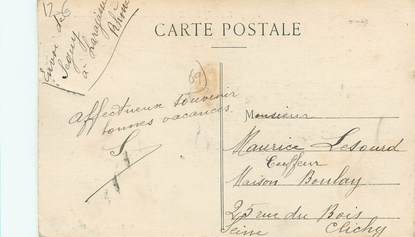 12
Envoi de
Seguy
à
Rhône
CARTE POSTALE
69
Affectueux souvenir
bonnes vacances.
S
Monsieur
Maurice Lesourd
Coiffeur
Maison Boulay
25 rue du Bois
Clichy
Seine